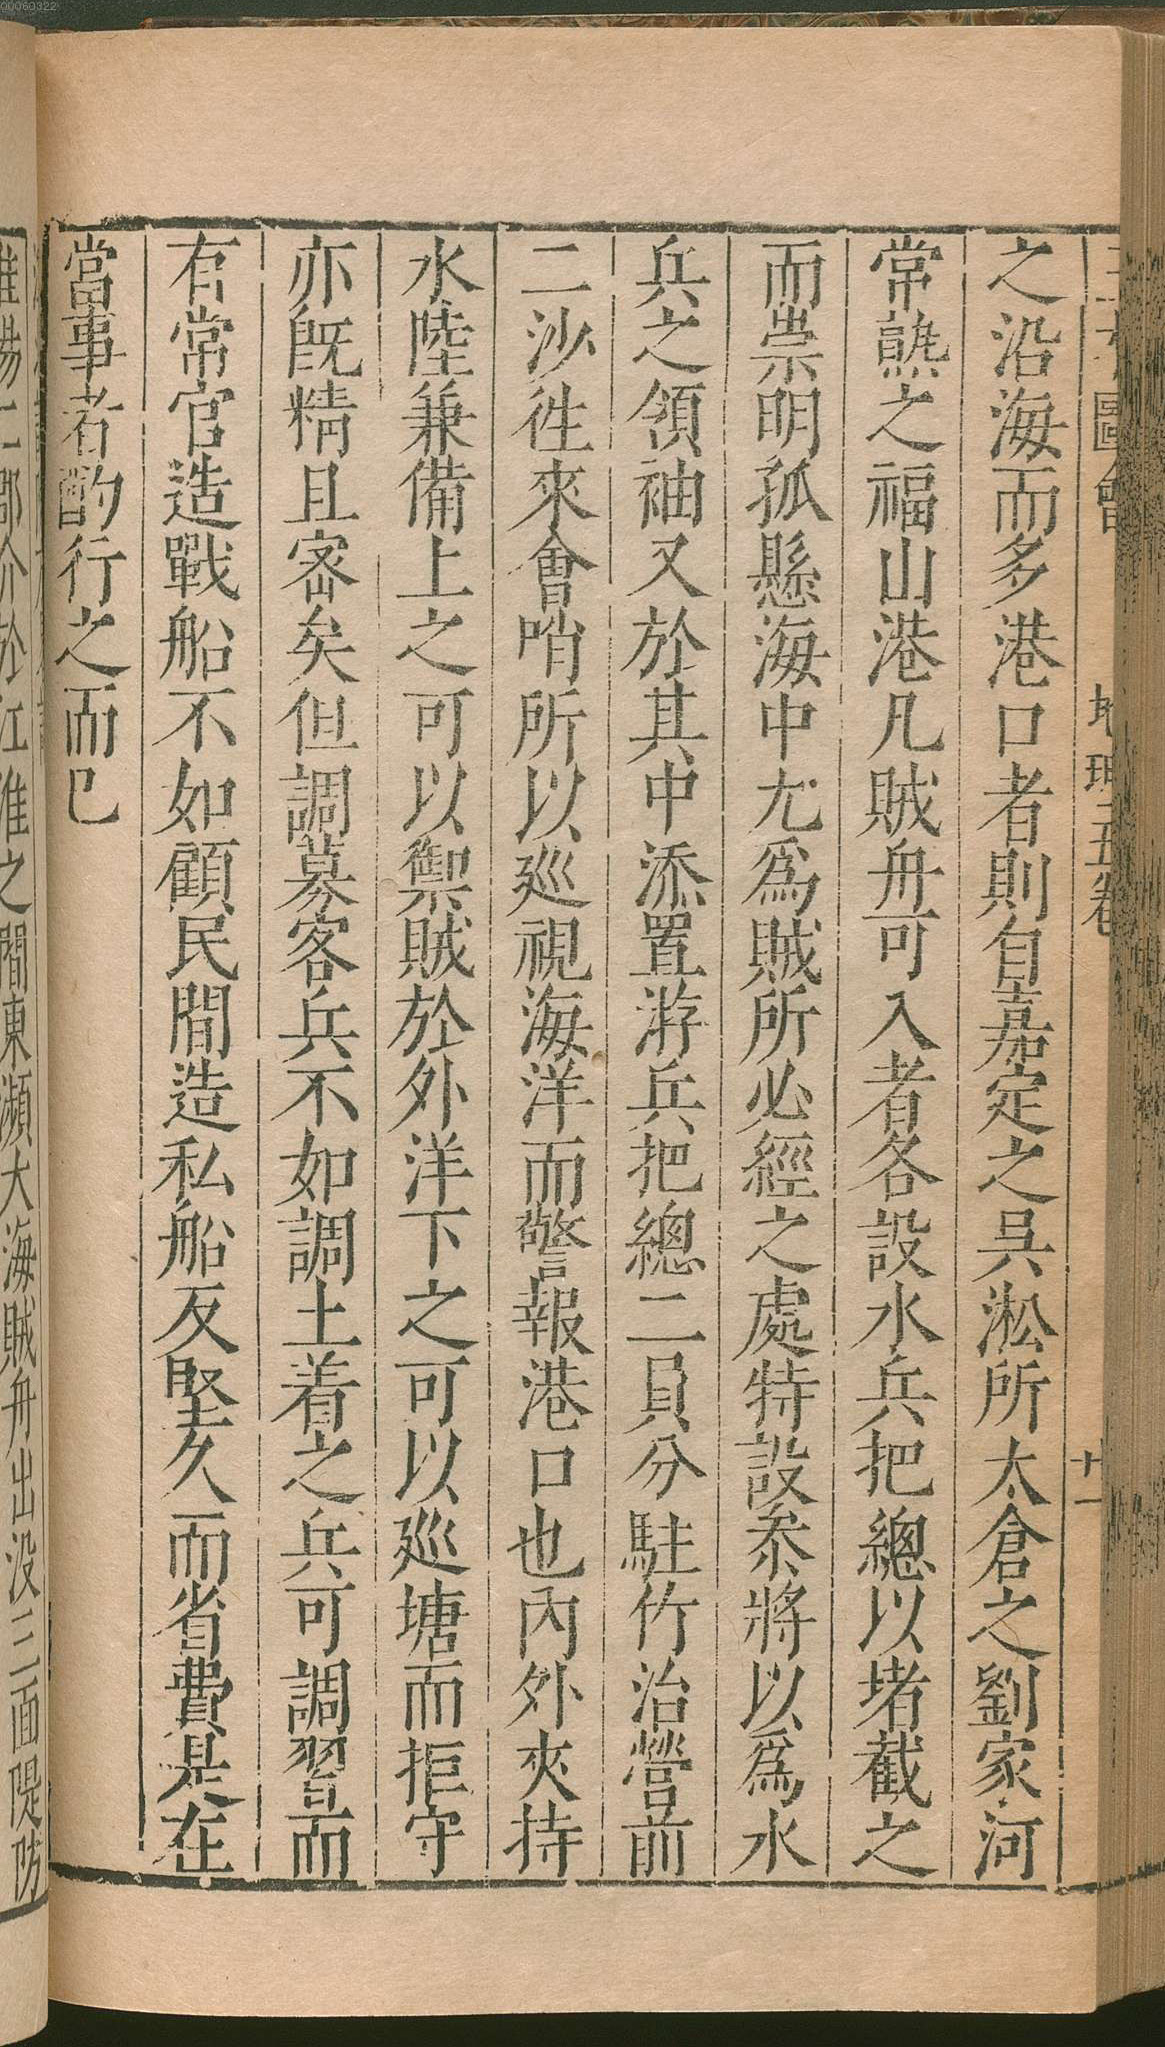 00060322
三才圖會 地理五卷 十一
之沿海而多港口者則自嘉定之吳淞所太倉之劉家河
常譙之福山港凡賊舟可入者各設水兵把總以堵截之
而崇明孤懸海中尤爲賊所必經之處特設叅將以爲水
兵之領袖又於其中添置游兵把總二員分駐竹治營前
二沙徃來會哨所以巡視海洋而警報港口也內外夾持
水陸兼備上之可以禦賊於外洋下之可以巡塘而拒守
亦旣精且宻矣但調募客兵不如調土着之兵可調習而
有常官造戰船不如顧民間造私船反堅久而省費是在
當事者酌行之而已
淮揚二郡介於江淮之間東瀕大海賊舟出没三面隄防